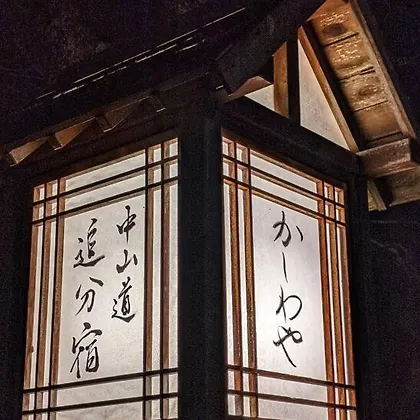 中山道
追分宿
かしわや